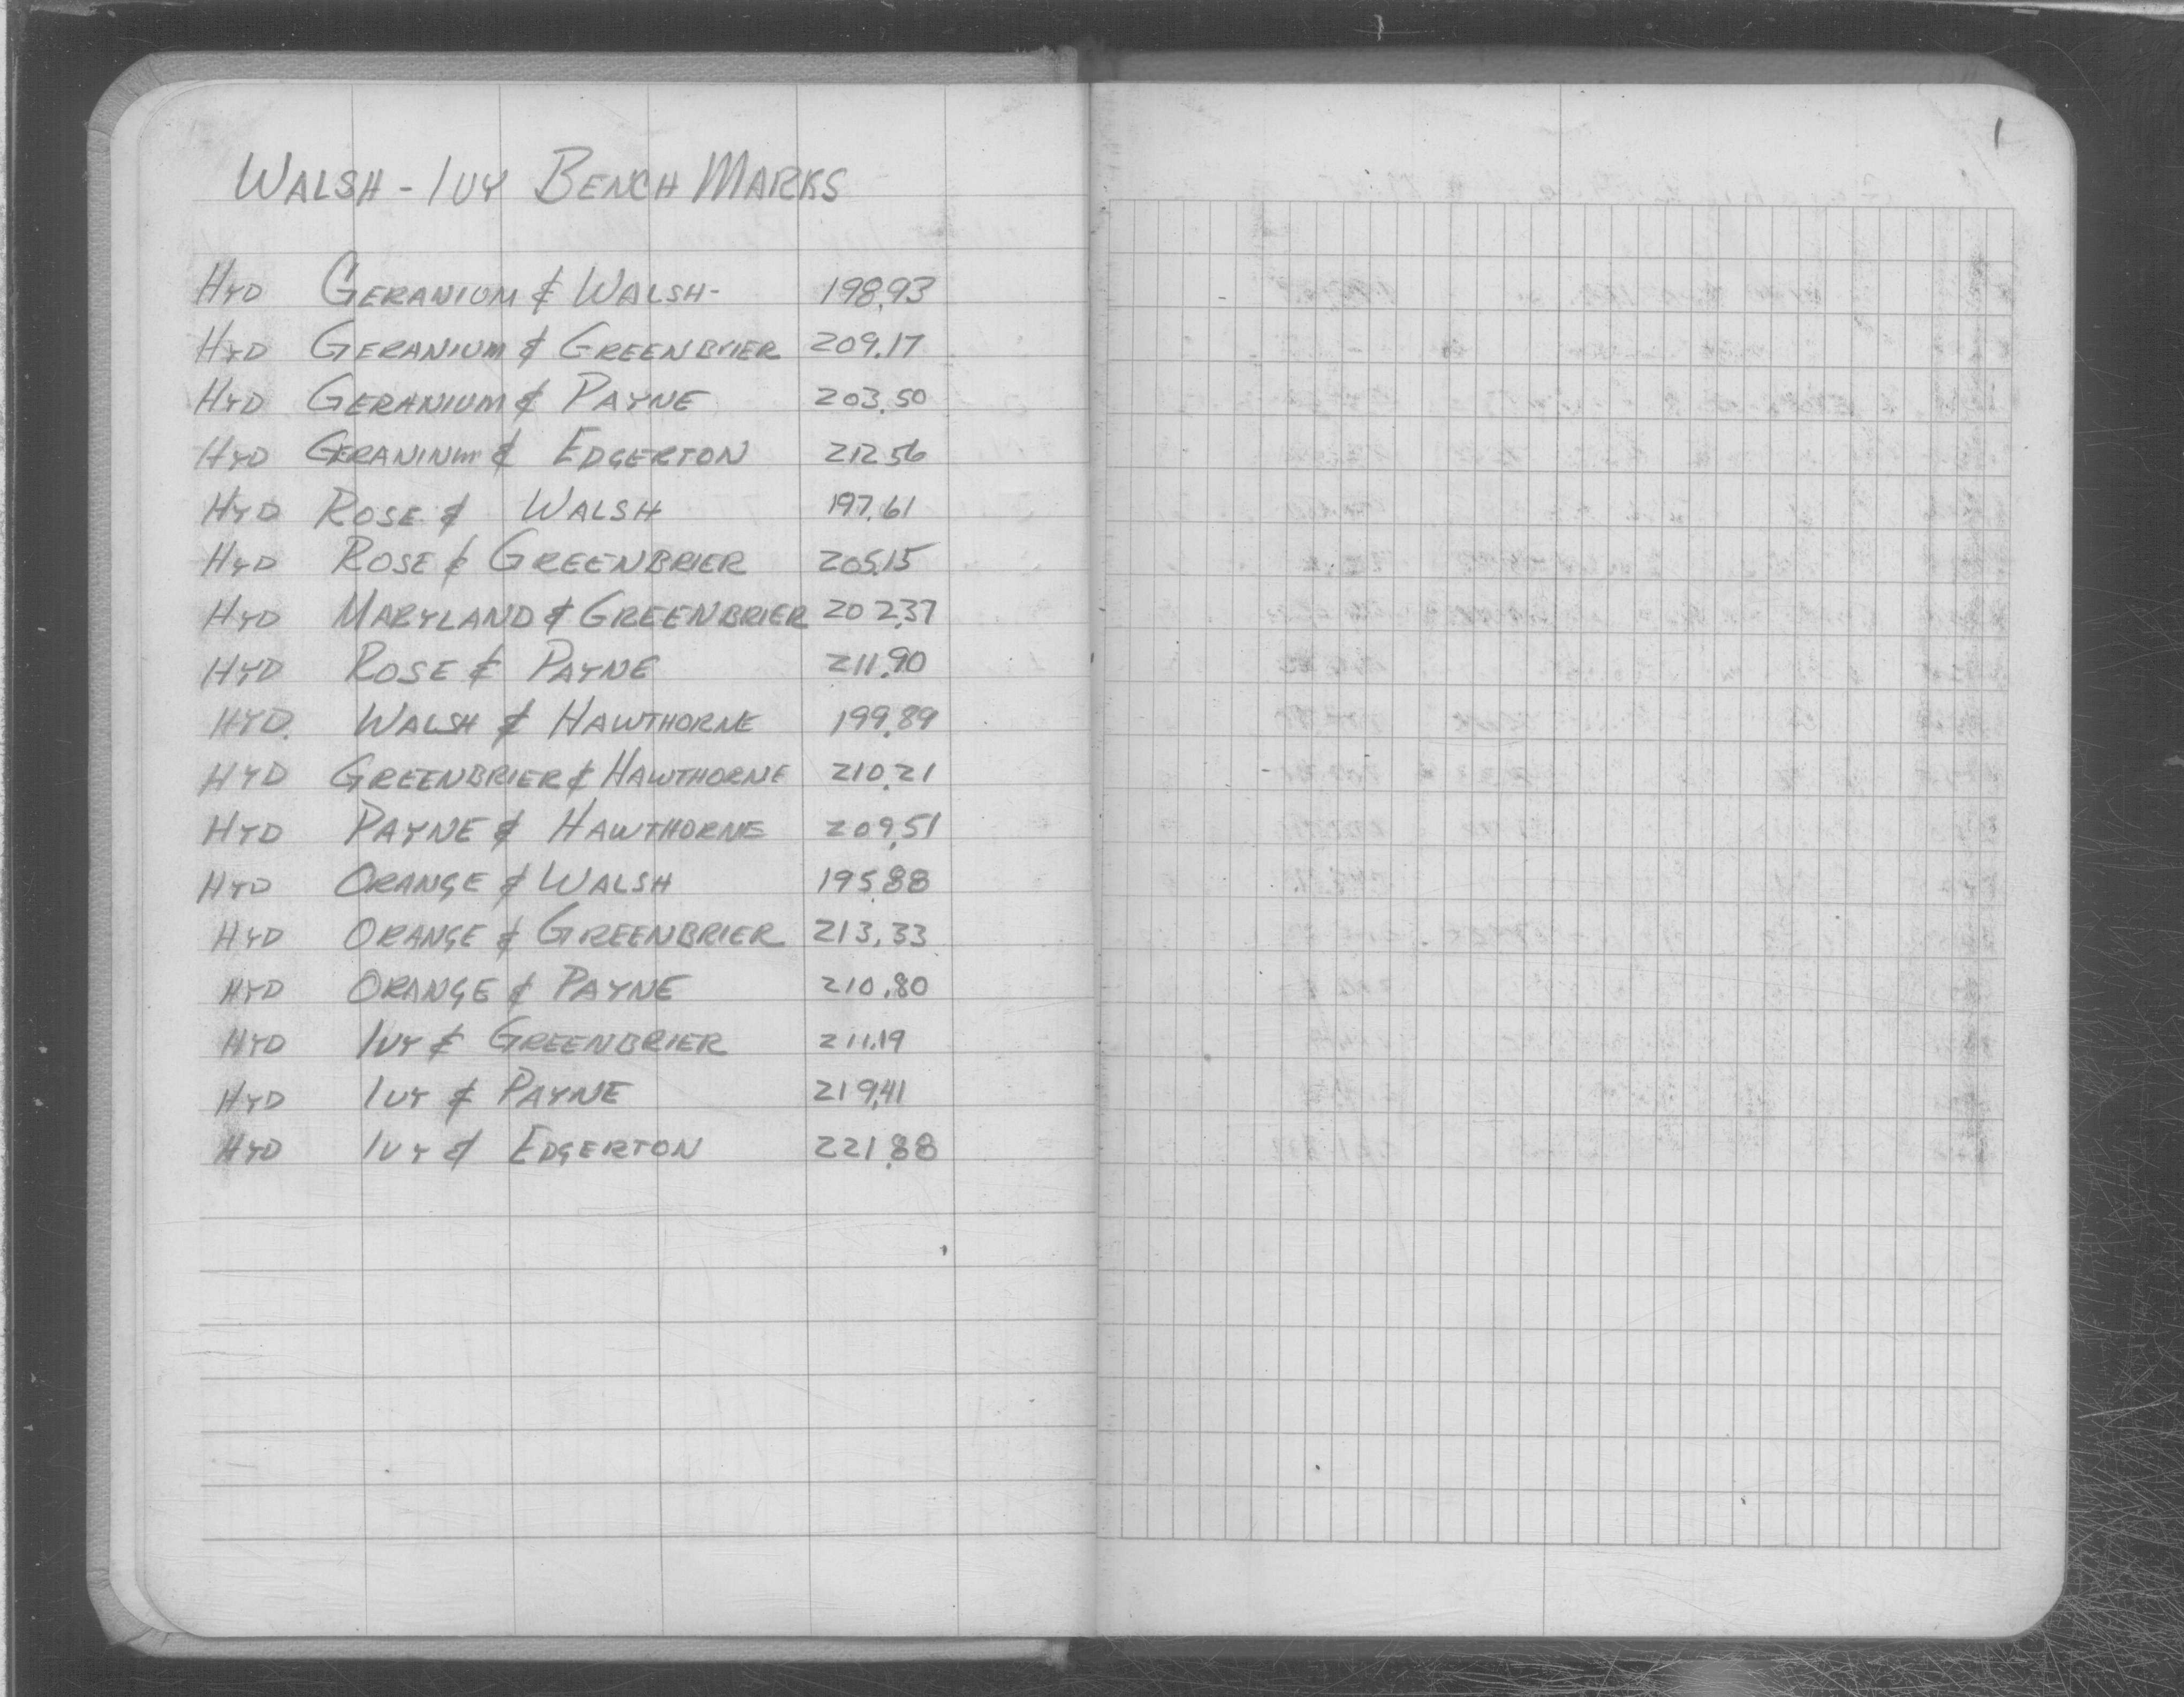 WALSH - IVY BENCH MARKS
1
HYD GERANIUM & WALSH - 198.93
HYD GERANIUM & GREENBRIER 209.17
HYD GERANIUM & PAYNE 203.50
HYD GERANINUM & EDGERTON 212.56
HYD ROSE & WALSH 197.61
HYD ROSE & GREENBRIER 205.15
HYD MARYLAND & GREENBRIER 202.37
HYD ROSE & PAYNE 211.90
HYD. WALSH & HAWTHORNE 199.89
HYD GREENBRIER & HAWTHORNE 210.21
HYD PAYNE & HAWTHORNE 209.51
HYD ORANGE & WALSH 195.88
HYD ORANGE & GREENBRIER 213.33
HYD ORANGE & PAYNE 210.80
HYD IVY & GREENBRIER 211.19
HYD IVY & PAYNE 219.41
HYD IVY & EDGERTON 221.88